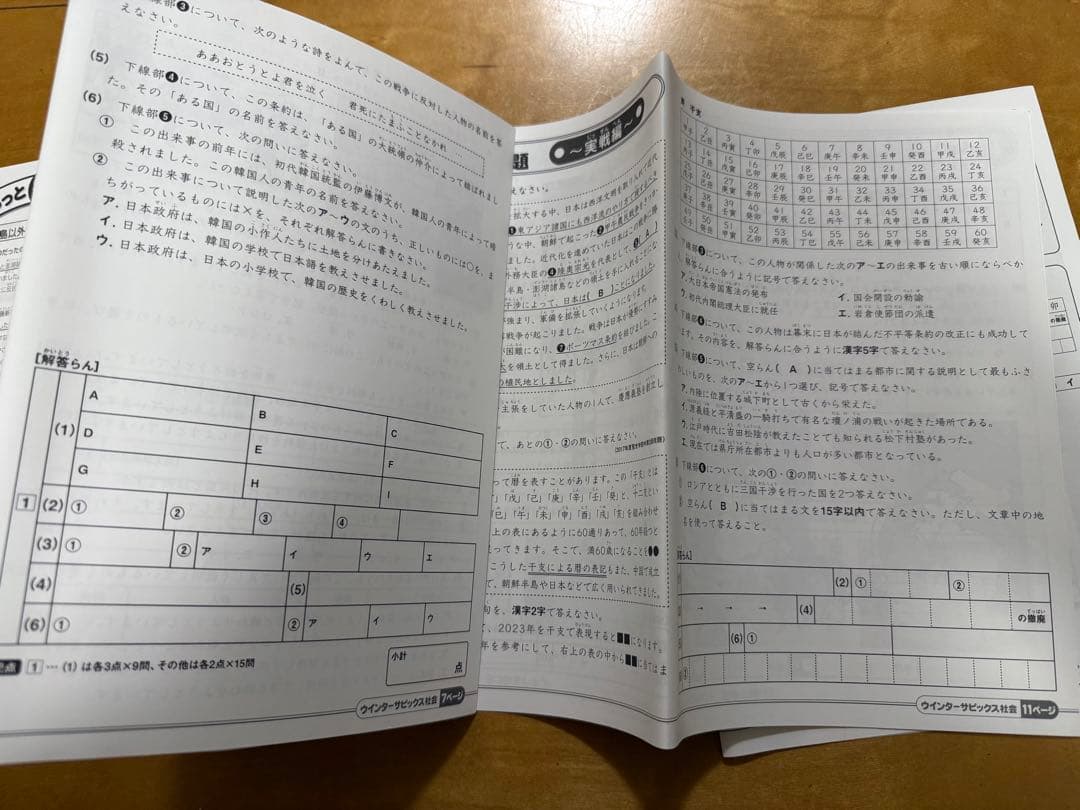 線部❸について、次のような詩をよんで、この戦争に反対した人物の名前を答
えなさい。
ああおとうとよ君を泣く　君死にたまふことなかれ
(5) 下線部❹について、この条約は、「ある国」の大統領の仲介によって結ばれまし
た。その「ある国」の名前を答えなさい。
(6) 下線部❺について、次の問いに答えなさい。
① この出来事の前年には、初代韓国統監の伊藤博文が、韓国人の青年によって暗
殺されました。この韓国人の青年の名前を答えなさい。
② この出来事について説明した次のア〜ウの文のうち、正しいものには○を、ま
ちがっているものには×を、それぞれ解答らんに書きなさい。
ア．日本政府は、韓国の小作人たちに土地を分けあたえました。
イ．日本政府は、韓国の学校で日本語を教えさせました。
ウ．日本政府は、日本の小学校で、韓国の歴史をくわしく教えさせました。
[解答らん]
1
(1) A B C
D E F
G H I
(2) ① ② ③ ④
(3) ① ② ア イ ウ エ
(4) (5)
(6) ① ② ア イ ウ
1 … (1) は各3点×9問、その他は各2点×15問
小計
点
ウインターサピックス社会 7ページ
題 〜実戦編〜
えなさい。
拡大する中、日本は西洋文明を取り入れて近代
❶東アジア諸国にも西洋流のやり方で接するべき
うな中、朝鮮で起こった❷甲午農民戦争をきっか
ました。近代化を進めていた日本はこの戦い
外務大臣の❹陸奥宗光を代表として❺( A )
半島・澎湖諸島などの領土を手に入れることに
干渉によって、日本は( B )ことになりました。
強まり、軍備を拡張していくようになります。
戦争が起こりました。戦争は日本が優勢にすすみ
が困難になり、❼ポーツマス条約を結びました。こ
を領土として得ました。さらに、日本は朝鮮への
の植民地としました。
主張をしていた人物の1人で、慶應義塾を創立し
て、あとの①・②の問いに答えなさい。
って暦を表すことがあります。この「干支」とは
「戊」「己」「庚」「辛」「壬」「癸」と、十二支とい
「巳」「午」「未」「申」「酉」「戌」「亥」を組み合わせ
上の表にあるように60通りあって、60年経つと
ってきます。そこで、満60歳になることを●●
こうした干支による暦の表記もまた、中国で成立
て、朝鮮半島や日本などで広く用いられてきました。
句を、漢字2字で答えなさい。
て、2023年を干支で表現すると■■になります。
年を参考にして、右上の表の中から■■に当てはま
2 3 4 5 6 7 8 9 10 11 12
甲子 乙丑 丙寅 丁卯 戊辰 己巳 庚午 辛未 壬申 癸酉 甲戌 乙亥
14 15 16 17 18 19 20 21 22 23 24
丁丑 戊寅 己卯 庚辰 辛巳 壬午 癸未 甲申 乙酉 丙戌 丁亥
26 27 28 29 30 31 32 33 34 35 36
己丑 庚寅 辛卯 壬辰 癸巳 甲午 乙未 丙申 丁酉 戊戌 己亥
38 39 40 41 42 43 44 45 46 47 48
辛丑 壬寅 癸卯 甲辰 乙巳 丙午 丁未 戊申 己酉 庚戌 辛亥
49 50 51 52 53 54 55 56 57 58 59 60
癸丑 甲寅 乙卯 丙辰 丁巳 戊午 己未 庚申 辛酉 壬戌 癸亥
下線部❸について、この人物が関係した次のア〜エの出来事を古い順にならべか
え、解答らんに合うように記号で答えなさい。
ア．大日本帝国憲法の発布　イ．国会開設の勅諭
ウ．初代内閣総理大臣に就任　エ．岩倉使節団の派遣
下線部❹について、この人物は幕末に日本が結んだ不平等条約の改正にも成功して
ます。その内容を、解答らんに合うように漢字5字で答えなさい。
下線部❺について、空らん( A )に当てはまる都市に関する説明として最もふさ
わしいものを、次のア〜エから1つ選び、記号で答えなさい。
ア．内陸に位置する城下町として古くから栄えた。
イ．源義経と平清盛の一騎打ちで有名な壇ノ浦の戦いが起きた場所である。
ウ．江戸時代に吉田松陰が教えたことでも知られる松下村塾があった。
エ．現在では県庁所在都市よりも人口が多い都市となっている。
下線部❻について、次の①・②の問いに答えなさい。
ロシアとともに三国干渉を行った国を2つ答えなさい。
空らん( B )に当てはまる文を15字以内で答えなさい。ただし、文章中の地
名を使って答えること。
答らん]
(2) ① ②
→ → → (4) の撤廃
(6) ①
ウインターサピックス社会 11ページ
島以外
卯